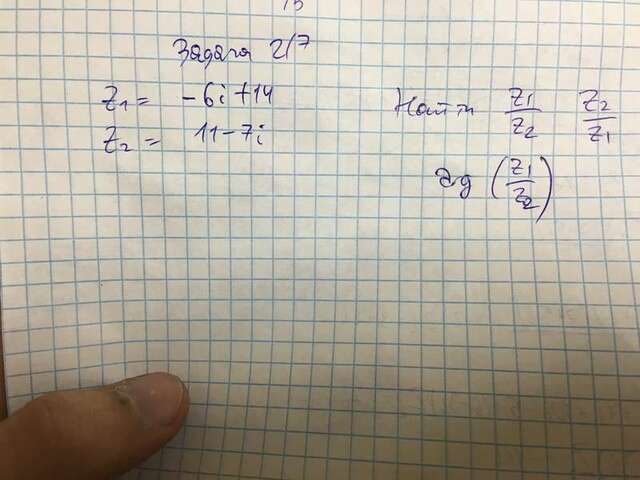 Задача 217
z₁ = -6i+14
z₂ = 11-7i
Найти z₁/z₂ z₂/z₁
(z₁/z₂)